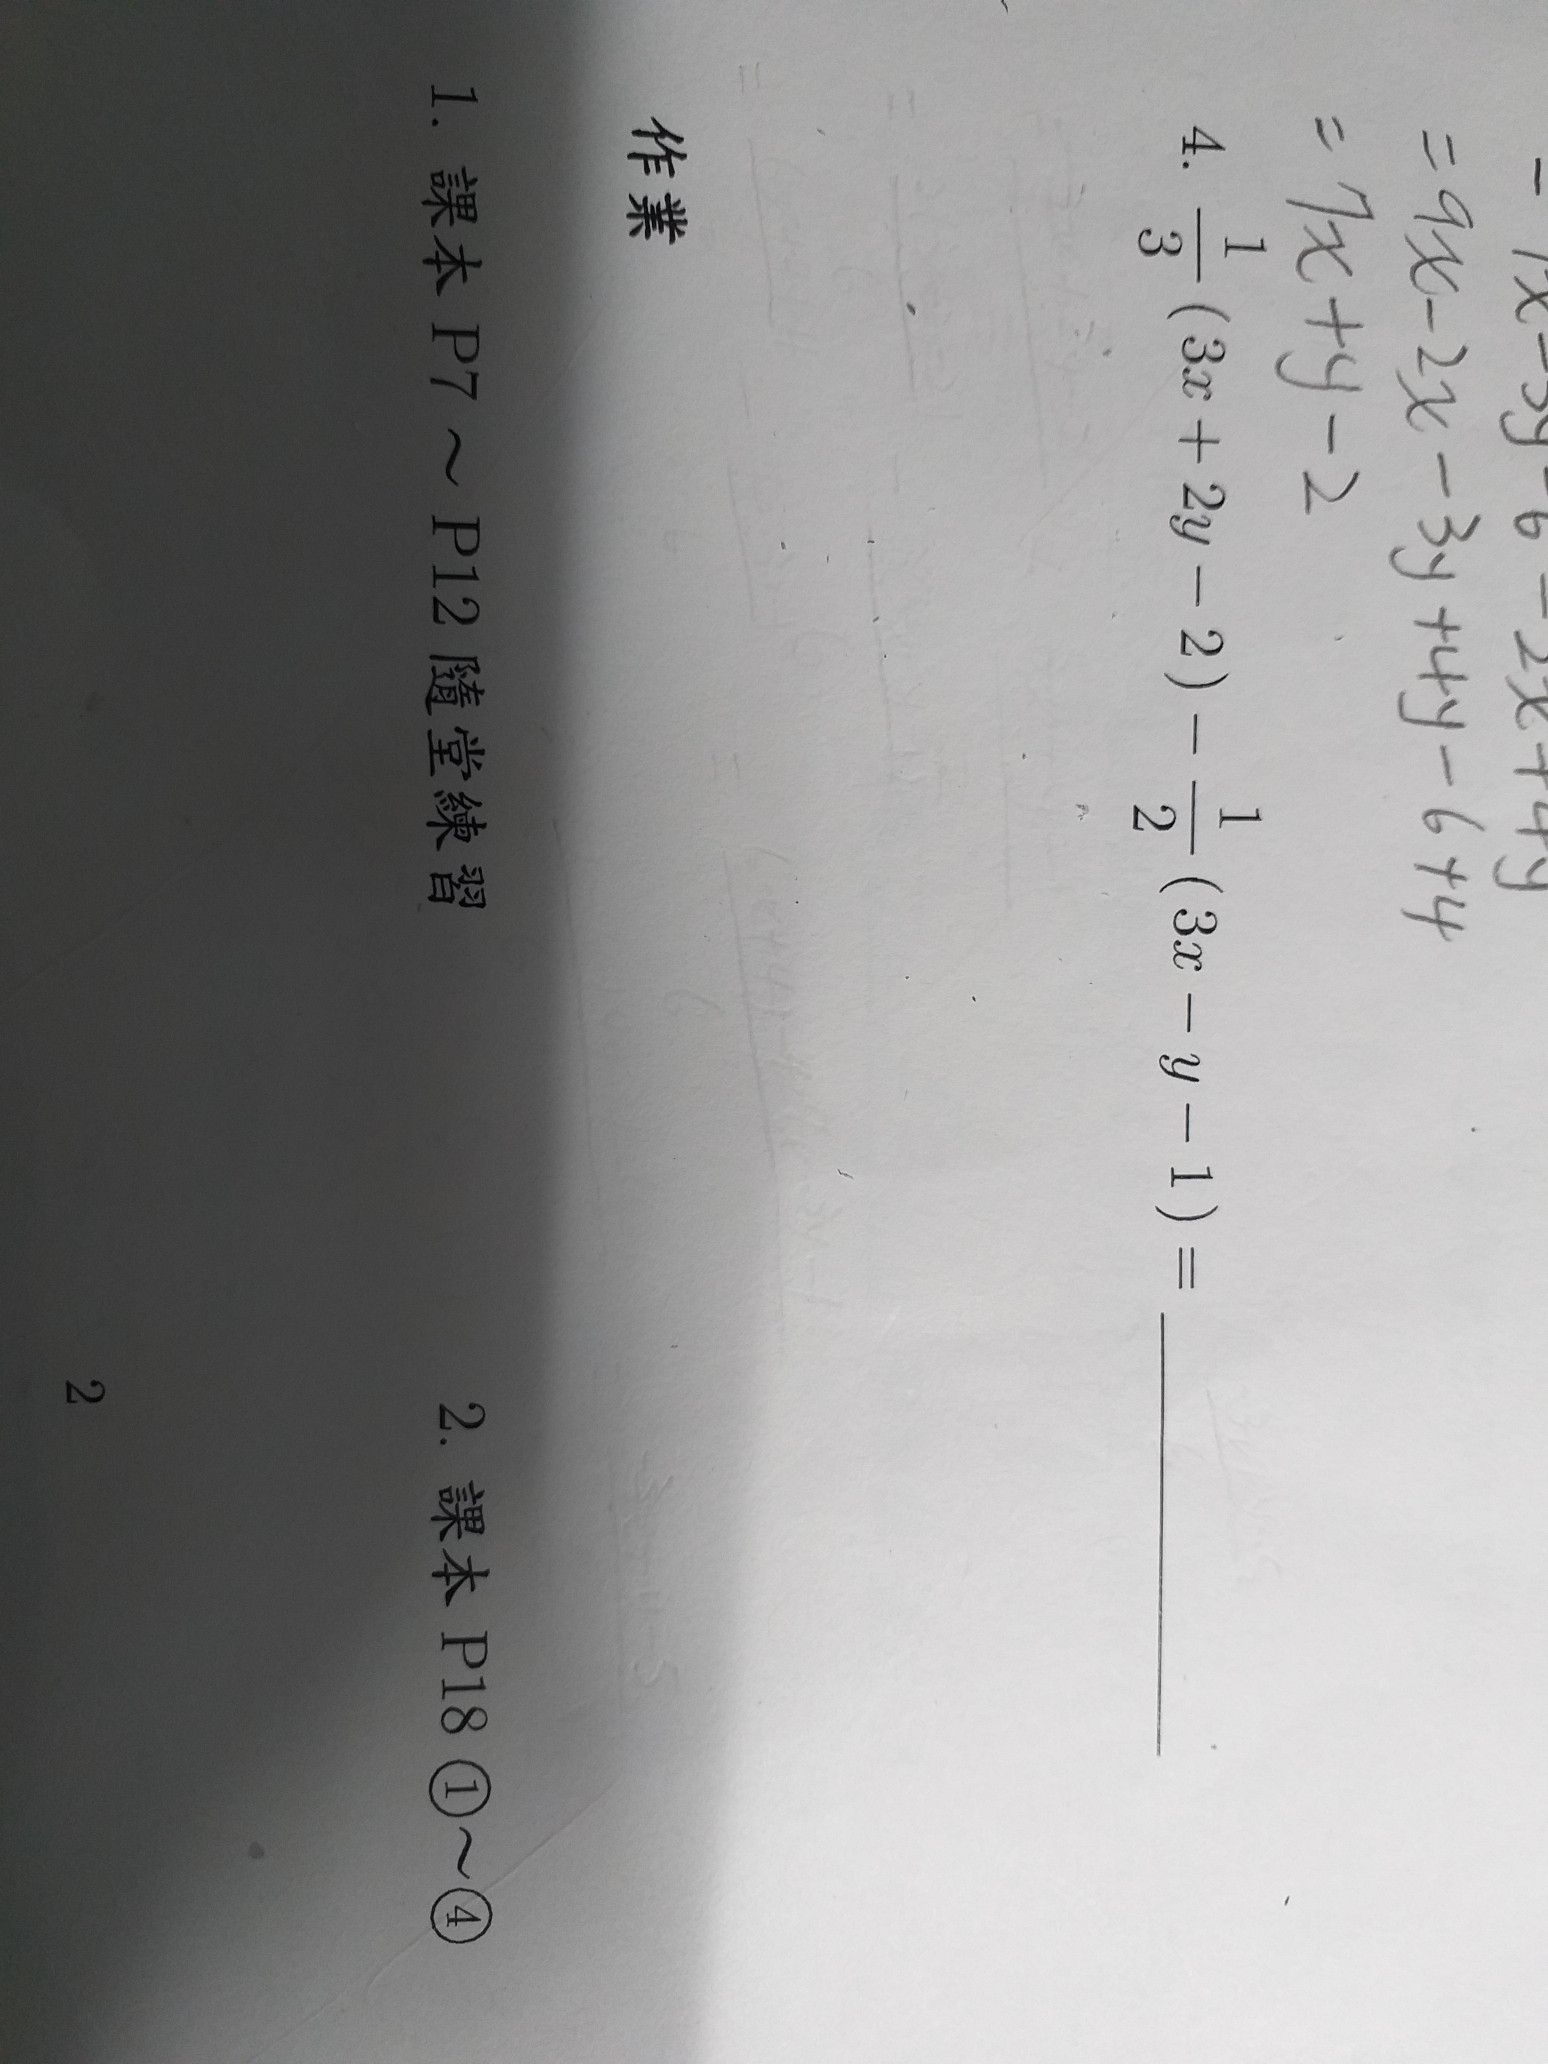 = 9x - 2x - 3y + 4y - 6 + 4
= 7x + y - 2
4. \frac{1}{3}(3x + 2y - 2) - \frac{1}{2}(3x - y - 1) = ________
作業
1. 課本 P7 ~ P12 隨堂練習 2. 課本 P18 ①~④
2